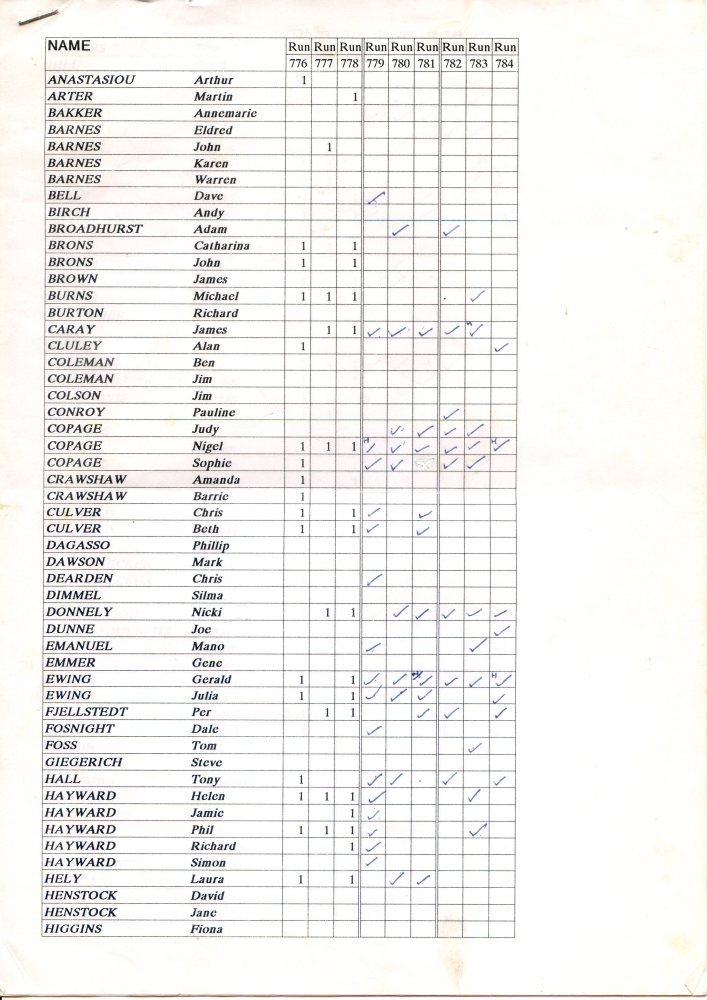 NAME Run Run Run Run Run Run Run Run Run
776 777 778 779 780 781 782 783 784
ANASTASIOU Arthur 1
ARTER Martin 1
BAKKER Annemarie
BARNES Eldred
BARNES John 1
BARNES Karen
BARNES Warren
BELL Dave ✓
BIRCH Andy
BROADHURST Adam ✓ ✓
BRONS Catharina 1 1
BRONS John 1 1
BROWN James
BURNS Michael 1 1 1 ✓
BURTON Richard
CARAY James 1 1 ✓ ✓ ✓ ✓ ✓
CLULEY Alan 1 ✓
COLEMAN Ben
COLEMAN Jim
COLSON Jim
CONROY Pauline ✓
COPAGE Judy ✓ ✓ ✓ ✓
COPAGE Nigel 1 1 1 H ✓ ✓ ✓ ✓ ✓ H ✓
COPAGE Sophie 1 ✓ ✓ ✓ ✓
CRAWSHAW Amanda 1
CRAWSHAW Barrie 1
CULVER Chris 1 1 ✓ ✓
CULVER Beth 1 1 ✓ ✓
DAGASSO Phillip
DAWSON Mark
DEARDEN Chris ✓
DIMMEL Silma
DONNELY Nicki 1 1 ✓ ✓ ✓ ✓ ✓
DUNNE Joe ✓
EMANUEL Mano ✓ ✓
EMMER Gene
EWING Gerald 1 1 ✓ ✓ H ✓ ✓ ✓ H ✓
EWING Julia 1 1 ✓ ✓ ✓ ✓
FJELLSTEDT Per 1 1 ✓ ✓ ✓
FOSNIGHT Dale ✓
FOSS Tom ✓
GIEGERICH Steve
HALL Tony 1 ✓ ✓ ✓ ✓
HAYWARD Helen 1 1 1 ✓ ✓
HAYWARD Jamie 1 ✓
HAYWARD Phil 1 1 1 ✓ ✓
HAYWARD Richard 1 ✓
HAYWARD Simon ✓
HELY Laura 1 1 ✓ ✓
HENSTOCK David
HENSTOCK Jane
HIGGINS Fiona